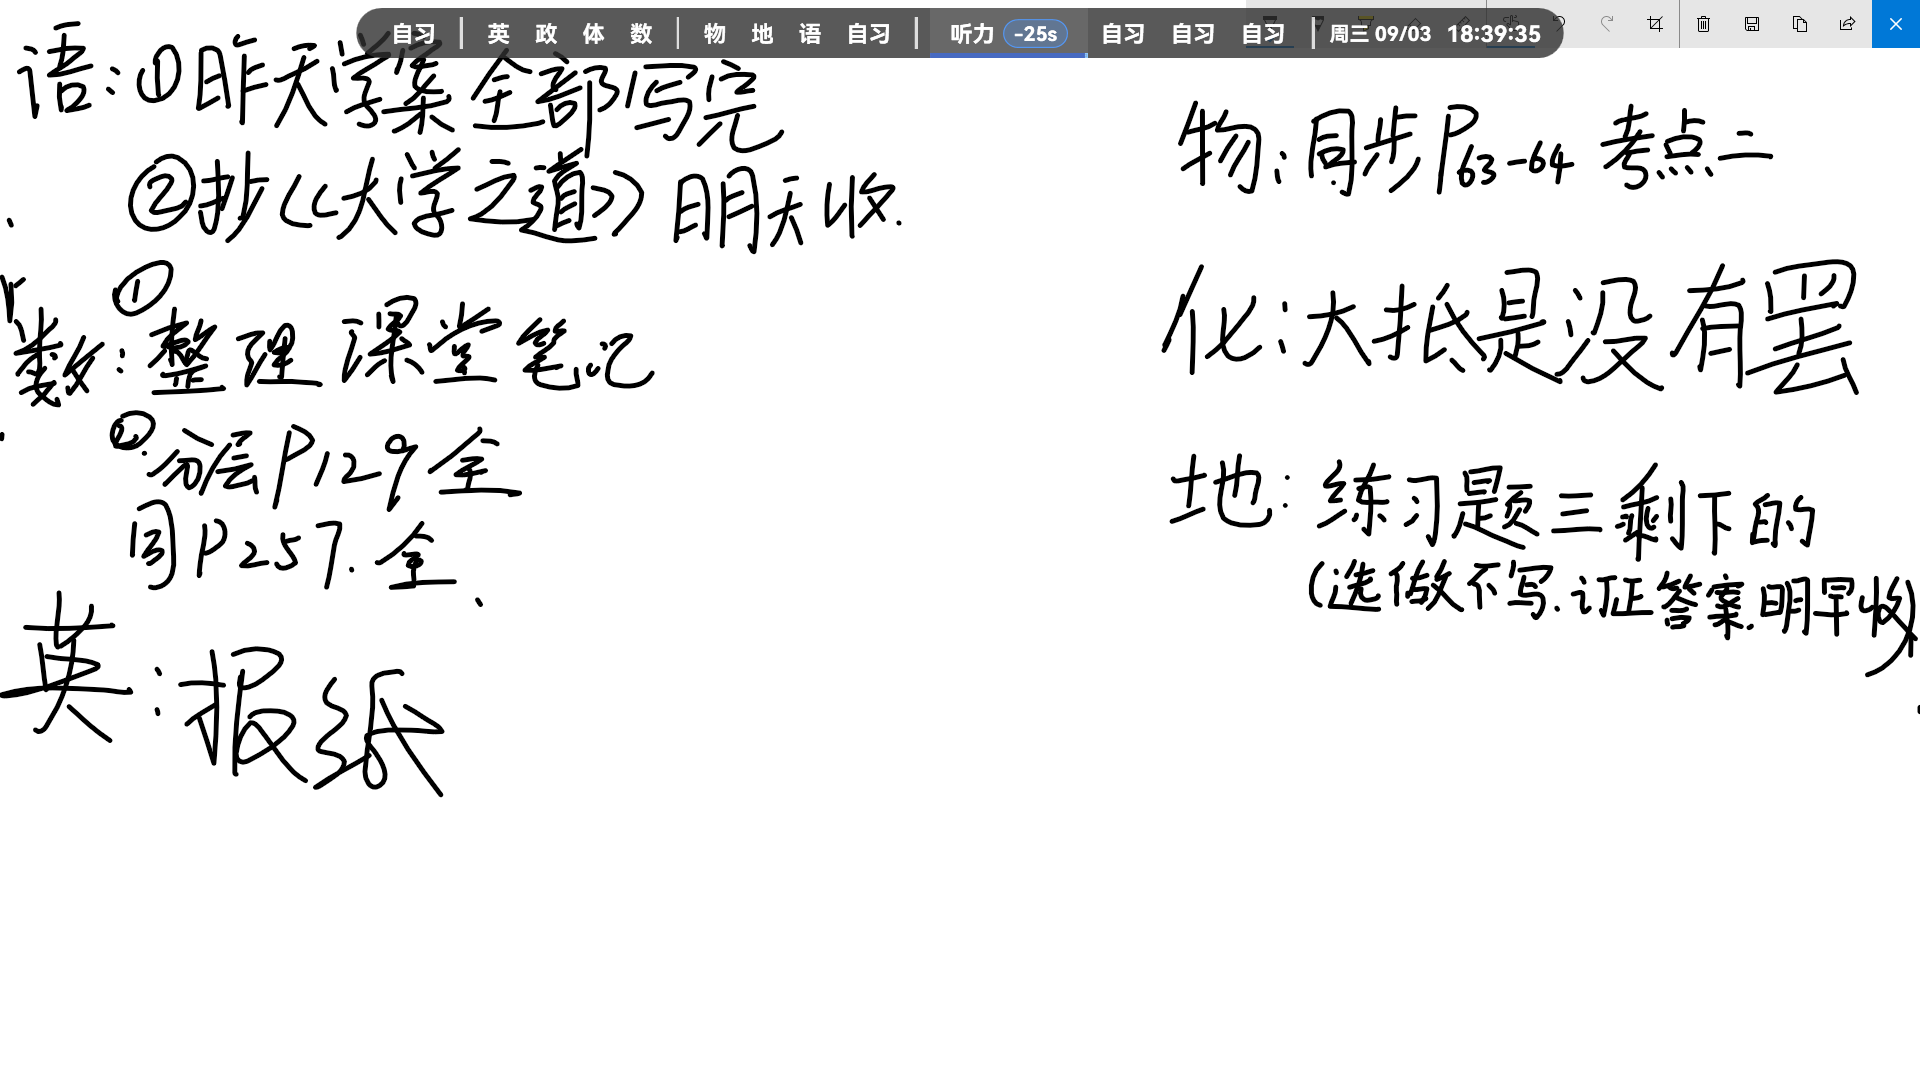 自习 | 英 政 体 数 | 物 地 语 自习 | 听力 -25s 自习 自习 自习 | 周三 09/03 18:39:35
语:①昨天学案全部写完
②抄《大学之道》明天收.
数:①整理课堂笔记
②分层P129全
同P257.全、
英:报纸
物:同步P63-64 考点二
化:大抵是没有罢
地:练习题三剩下的
(选做不写.订正答案.明早收)